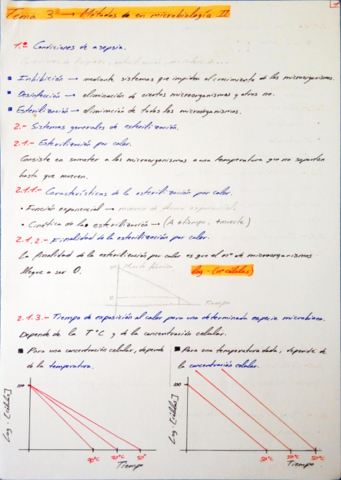 Tema 3 → Métodos de en microbiología II
1.2 Condiciones de asepsia.
• Inhibición → mediante sistemas que impiden el crecimiento de los microorganismos.
• Desinfección → eliminación de ciertos microorganismos y otros no.
• Esterilización → eliminación de todos los microorganismos.
2.- Sistemas generales de esterilización.
2.1.- Esterilización por calor.
Consiste en someter a los microorganismos a una temperatura que no soportan
hasta que mueren.
2.1.1.- Características de la esterilización por calor.
• Función exponencial → mueren de forma exponencial.
• Cinética de la esterilización → (↑ tiempo, ↑ muerte)
2.1.2.- Finalidad de la esterilización por calor.
La finalidad de la esterilización por calor es que el nº de microorganismos
llegue a ser 0.
Log - (nº células)
Tiempo
2.1.3.- Tiempo de exposición al calor para una determinada especie microbiana.
Depende de la Tª ºC y de la concentración celular.
■ Para una concentración celular, depende
de la temperatura.
■ Para una temperatura dada, depende de
la concentración celular.
100
Log - [células]
Tiempo
100
Log - [células]
Tiempo